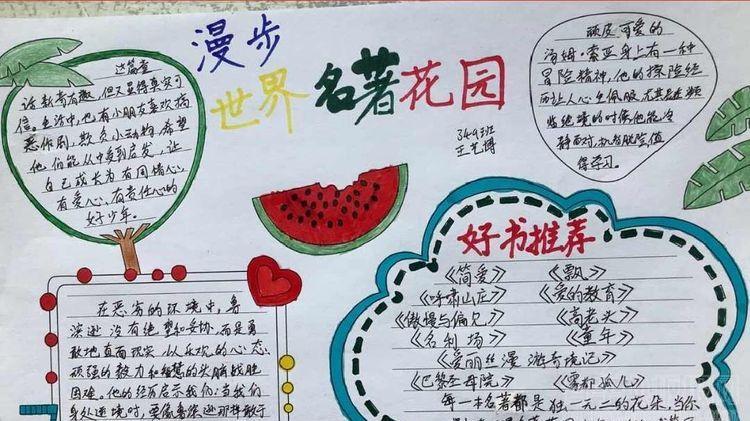 漫步
世界名著花园
349班
这篇童
话新奇有趣,但又显得真实可
信。生活中,也有小朋友喜欢搞
恶作剧,欺负小动物,希望
他们能从中受到启发,让
自己成长为有同情心、
有爱心、有责任心的
好少年。
顽皮可爱的
汤姆·索亚身上有一种
冒险精神,他的探险经
历让人心生佩服,尤其在面临
绝境的时候他能冷
静面对,机智脱险值
得学习。
好书推荐
《简爱》 《飘》
《呼啸山庄》 《爱的教育》
《傲慢与偏见》 《高老头》
《名利场》 《童年》
《爱丽丝漫游奇境记》
《巴黎圣母院》 《雾都孤儿》
每一本名著都是独一无二的花朵,当你
在恶劣的环境中,鲁
滨逊没有绝望和妥协,而是勇
敢地直面现实,以乐观的心态、
顽强的毅力和智慧的头脑战胜
困难。他的经历启示我们:当我们
身处逆境时,要像鲁滨逊那样敢于